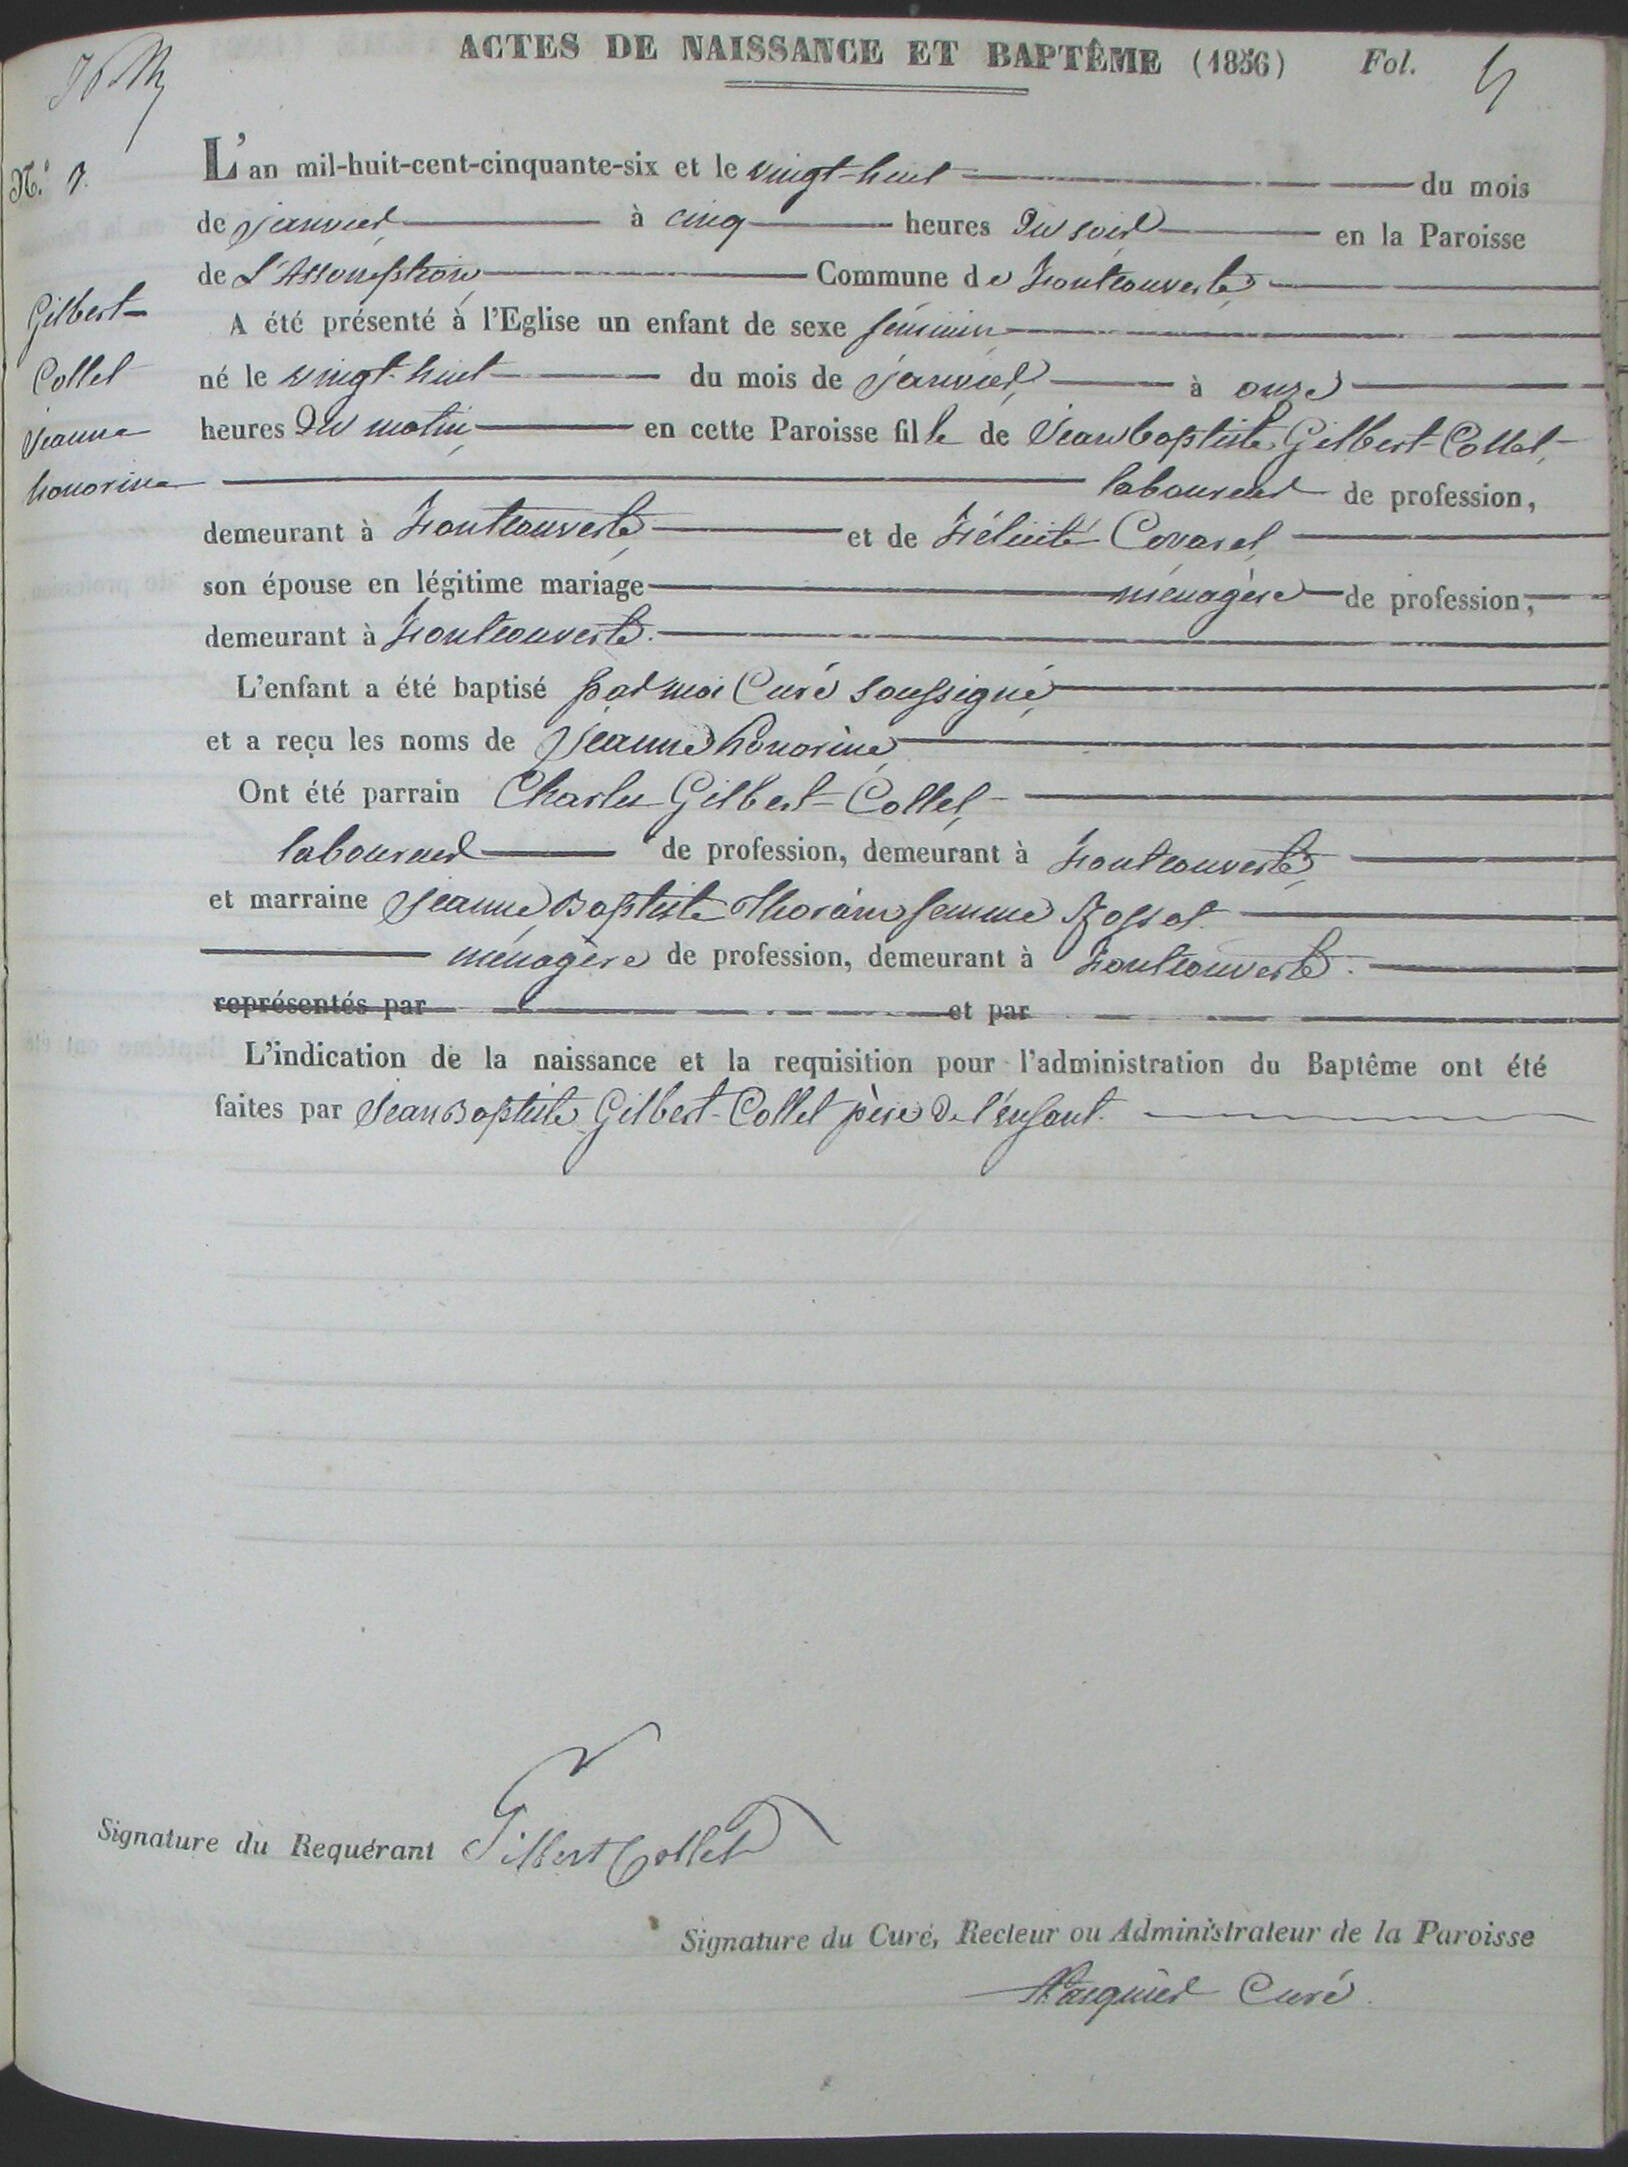 ACTES DE NAISSANCE ET BAPTÊME (1856) Fol. 4
N.º 7.
Gilbert-
Collet
Jeanne
honorine
L'an mil-huit-cent-cinquante-six et le vingt-huit du mois
de janvier à cinq heures du soir en la Paroisse
de L'Assomption Commune de Montcouverte
A été présenté à l'Eglise un enfant de sexe féminin
né le vingt-huit du mois de janvier, à onze
heures du matin, en cette Paroisse fille de Jean baptiste Gilbert-Collet,
laboureur de profession,
demeurant à Montcouverte, et de Félicité Covarel,
son épouse en légitime mariage ménagère de profession,
demeurant à Montcouverte.
L'enfant a été baptisé par moi Curé soussigné,
et a reçu les noms de Jeanne honorine,
Ont été parrain Charles Gilbert-Collet,
laboureur de profession, demeurant à Montcouverte,
et marraine Jeanne Baptiste femme Rossat
ménagère de profession, demeurant à Montcouverte.
représentés par et par
L'indication de la naissance et la requisition pour l'administration du Baptême ont été
faites par Jean Baptiste Gilbert-Collet père de l'enfant.
Signature du Requérant Gilbert Collet
Signature du Curé, Recteur ou Administrateur de la Paroisse
Pasquier Curé.